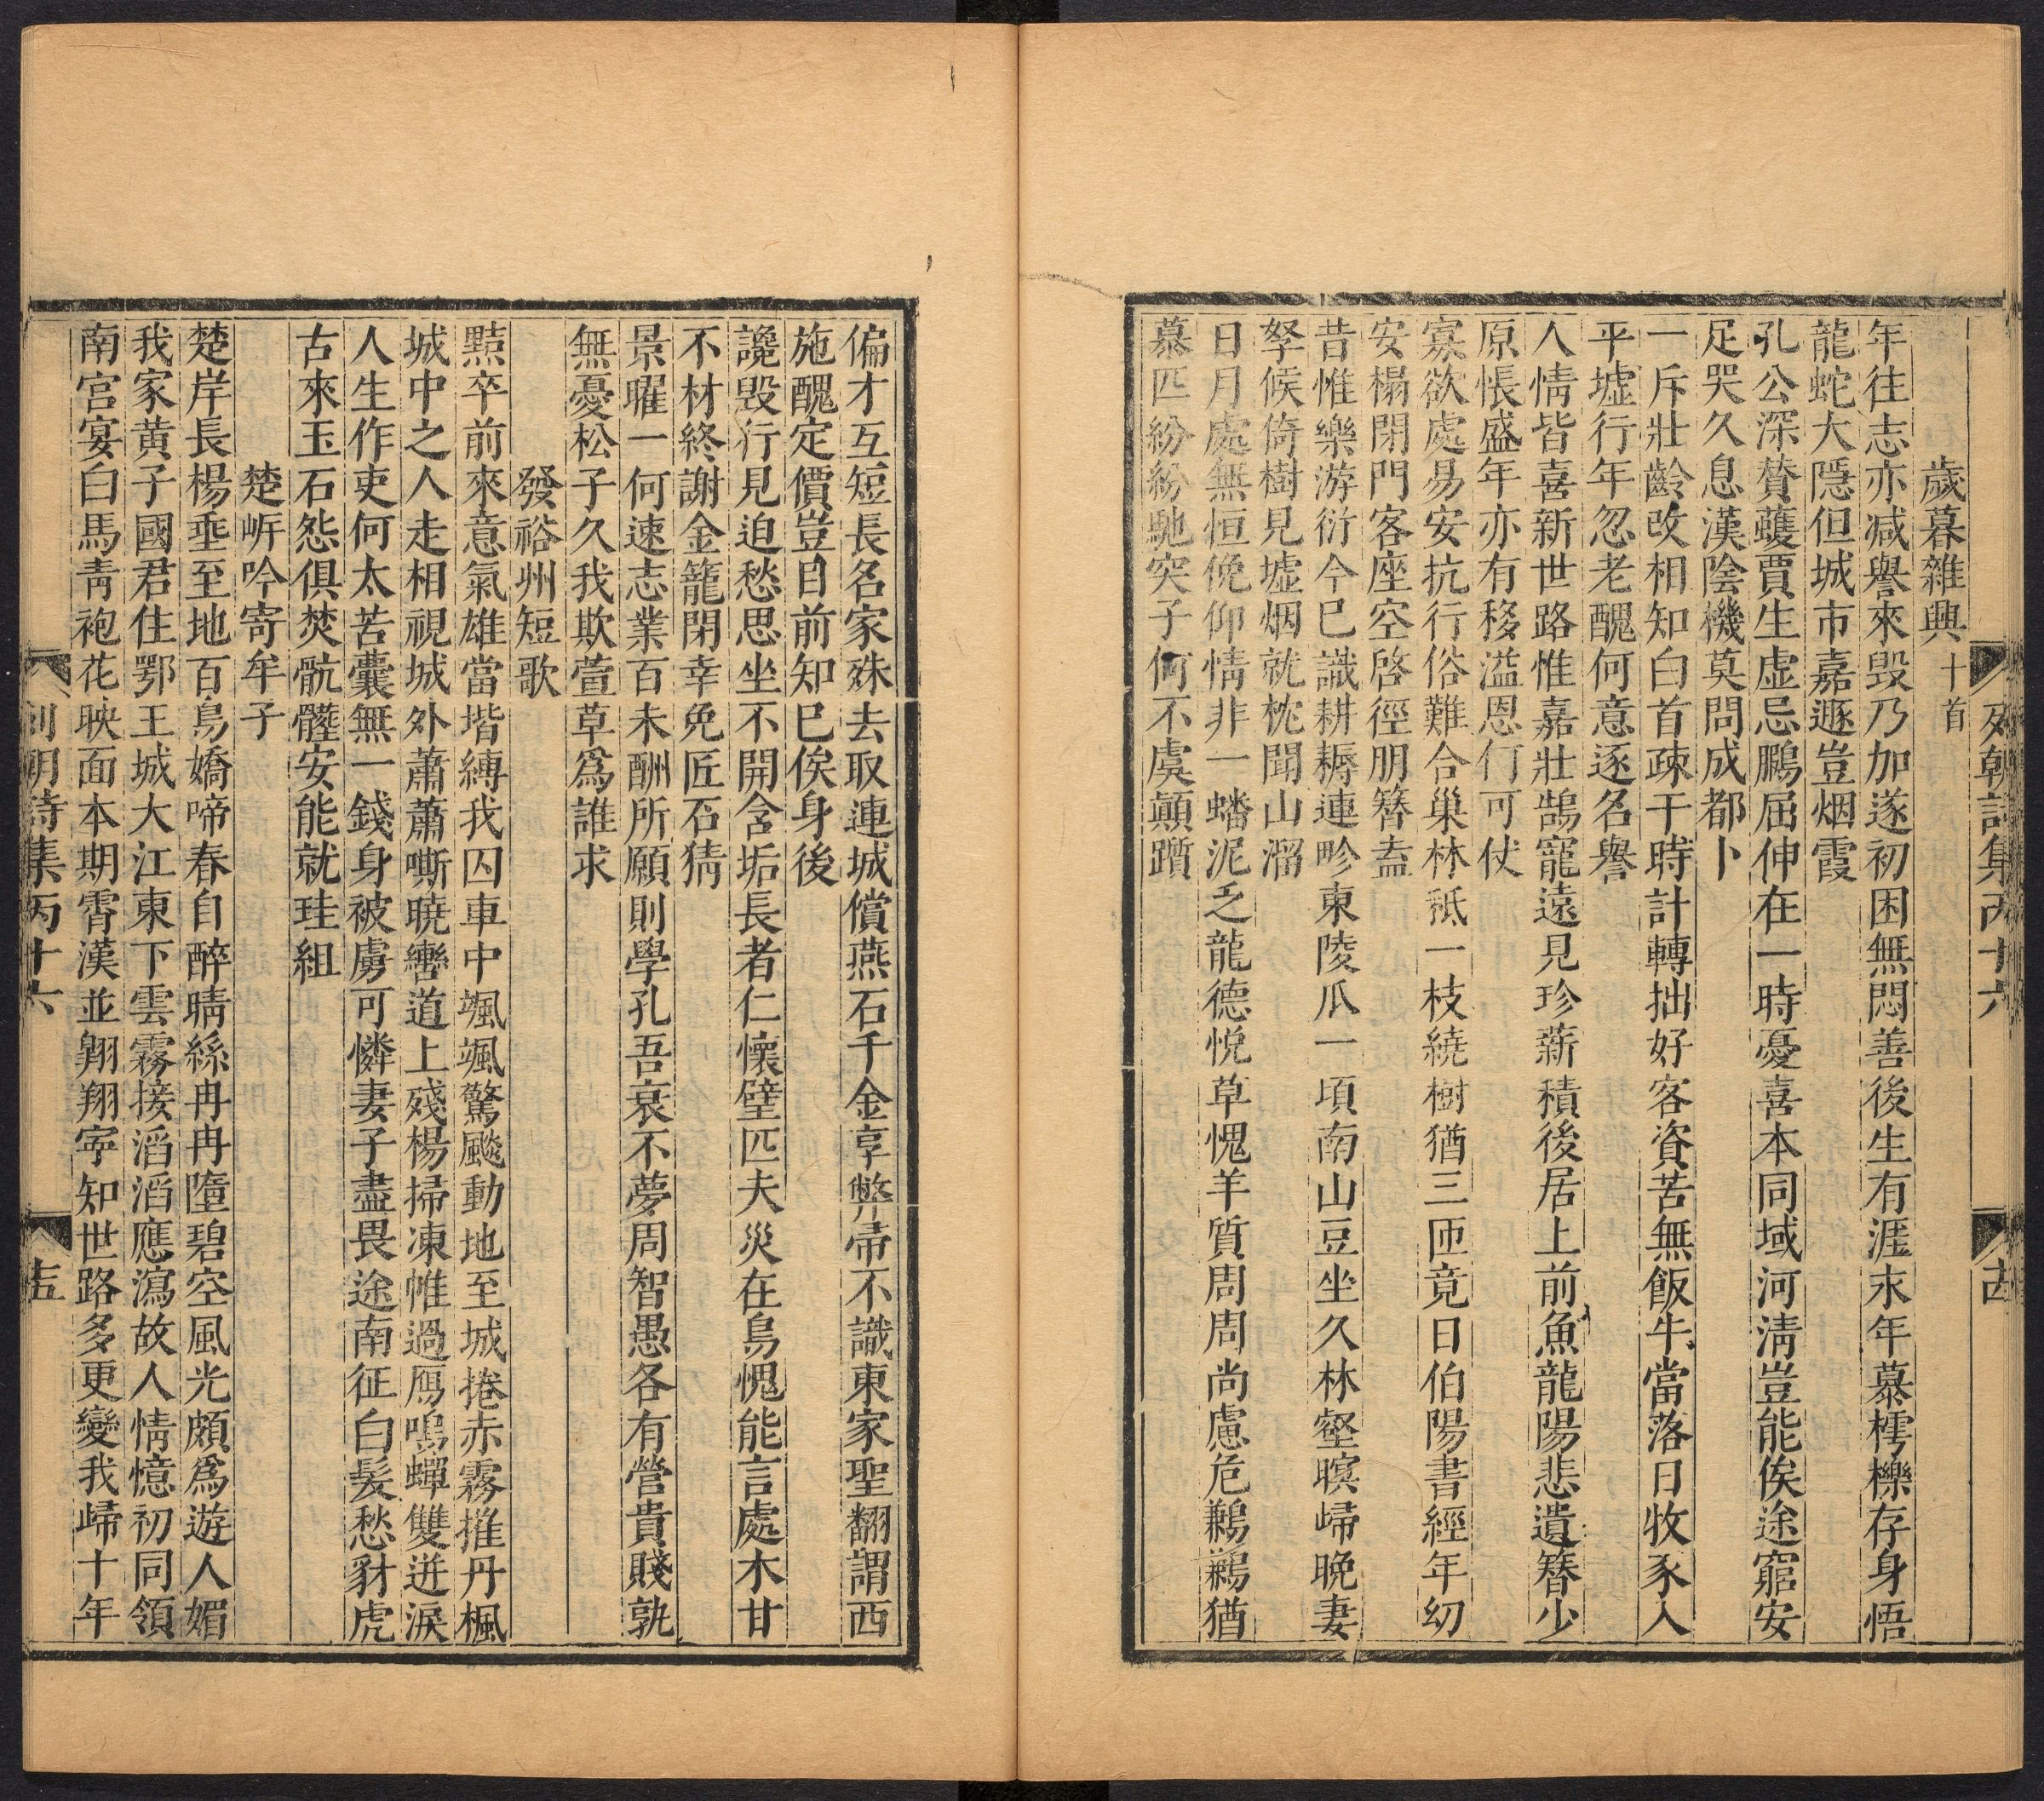 列朝詩集丙十六
古
歲暮雜興十首
年往志亦减譽來毀乃加遂初困無悶善後生有涯末年慕樗櫟存身悟
龍蛇大隱但城市嘉遯豈烟霞
孔公深贊蠖賈生虛忌鵩屈伸在一時憂喜本同域河淸豈能俟途窮安
足哭久息漢陰機莫問成都卜
一斥壯齡改相知白首疎干時計轉拙好客資苦無飯牛當落日牧豕入
平墟行年忽老醜何意逐名譽
人情皆喜新世路惟嘉壯鵠寵遠見珍薪積後居上前魚龍陽悲遺簪少
原悵盛年亦有移溢恩何可仗
寡欲處易安抗行俗難合巢林祗一枝繞樹猶三匝竟日伯陽書經年幼
安榻閉門客座空啓徑朋簪盍
昔惟樂游衍今巳識耕耨連畛東陵瓜一頃南山豆坐久林壑暝歸晚妻
孥候倚樹見墟烟就枕聞山溜
日月處無恒俛仰情非一蟠泥乏龍德悅草愧羊質周周尚慮危鶼鶼猶
慕匹紛紛馳突子何不虞顚躓
偏才互短長名家殊去取連城償燕石千金享弊帚不識東家聖翻謂西
施醜定價豈目前知巳俟身後
讒毀行見迫愁思坐不開含垢長者仁懷璧匹夫災在鳥愧能言處木甘
不材終謝金籠閉幸免匠石猜
景曜一何速志業百未酬所願則學孔吾衰不夢周智愚各有營貴賤孰
無憂松子久我欺萱草爲誰求
發裕州短歌
黠卒前來意氣雄當堦縛我囚車中颯颯驚飈動地至城捲赤霧摧丹楓
城中之人走相視城外蕭蕭嘶曉轡道上殘楊掃凍帷過鴈鳴蟬雙迸淚
人生作吏何太苦囊無一錢身被虜可憐妻子盡畏途南征白髮愁豺虎
古來玉石怨俱焚骯髒安能就珪組
楚岓吟寄牟子
楚岸長楊垂至地百鳥嬌啼春自醉晴絲冉冉墮碧空風光頗爲遊人媚
我家黄子國君住鄂王城大江東下雲霧接滔滔應瀉故人情憶初同領
南宮宴白馬靑袍花映面本期霄漢並翺翔寕知世路多更變我歸十年
列朝詩集丙十六
十五